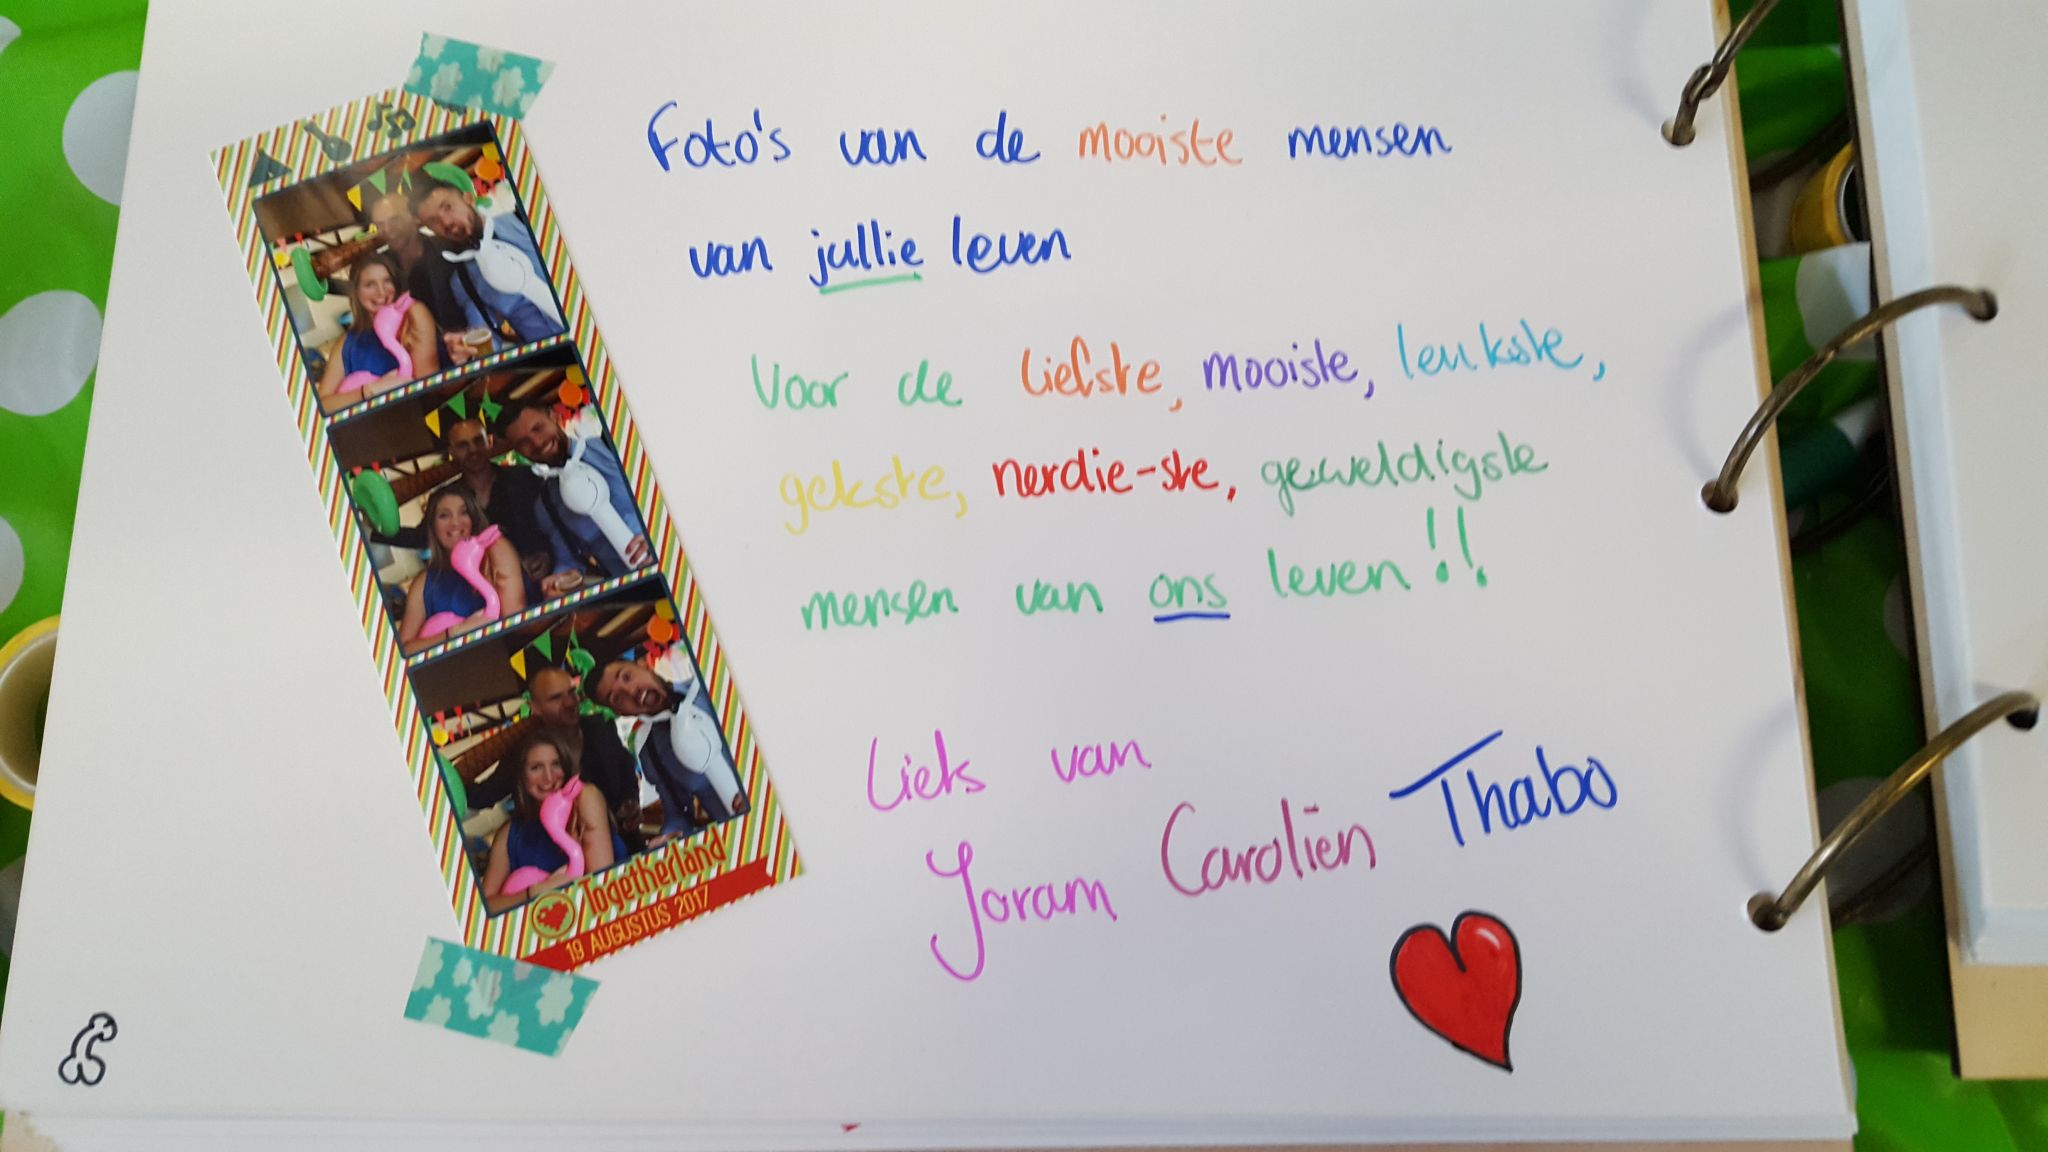 Foto's van de mooiste mensen
van jullie leven
Voor de liefste, mooiste, leukste,
gekste, nerdie-ste, geweldigste
mensen van ons leven!!
Liefs van
Joram Carolien Thabo
Togetherland
19 AUGUSTUS 2017